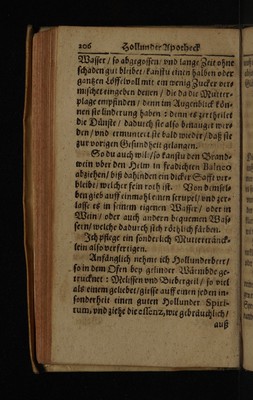 206 Hollunder Apotheck
Wasser / so abgegossen / vnd lange Zeit ohne
schaden gut bleibet / kanstu einen halben oder
gantzen Löffel voll mit ein wenig Zucker ver-
mischet eingeben denen / die da die Mutter-
plage empfinden / denn im Augenblick kön-
nen sie linderung haben : denn es zertheilet
die Dünste / dadurch sie also benauget wer-
den / vnd ermuntert sie bald wieder / daß sie
zur vorigen Gesundheit gelangen.
So du auch wilt / so kanstu den Brand-
wein vber den Helm in siedichten Balneo
abziehen / biß dahinden ein dicker Safft ver-
bleibe / welcher fein roth ist. Von demsel-
ben gieb auff einmahl einen scrupel / vnd zer-
lasse es in seinem eigenen Wasser / oder in
Wein / oder auch andern bequemen Was-
sern / welche dadurch sich röthlich färben.
Ich pflege ein sonderlich Muttertränck-
lein also verfertigen.
Anfänglich nehme ich Hollunderbeer /
so in dem Ofen bey gelinder Wärmbde ge-
trucknet : Melissen vnd Biebergeil / so viel
als einem geliebet / giesse auff einen jeden in-
sonderheit einen guten Hollunder Spiri-
tum, vnd ziehe die essenz, wie gebräuchlich /
auß